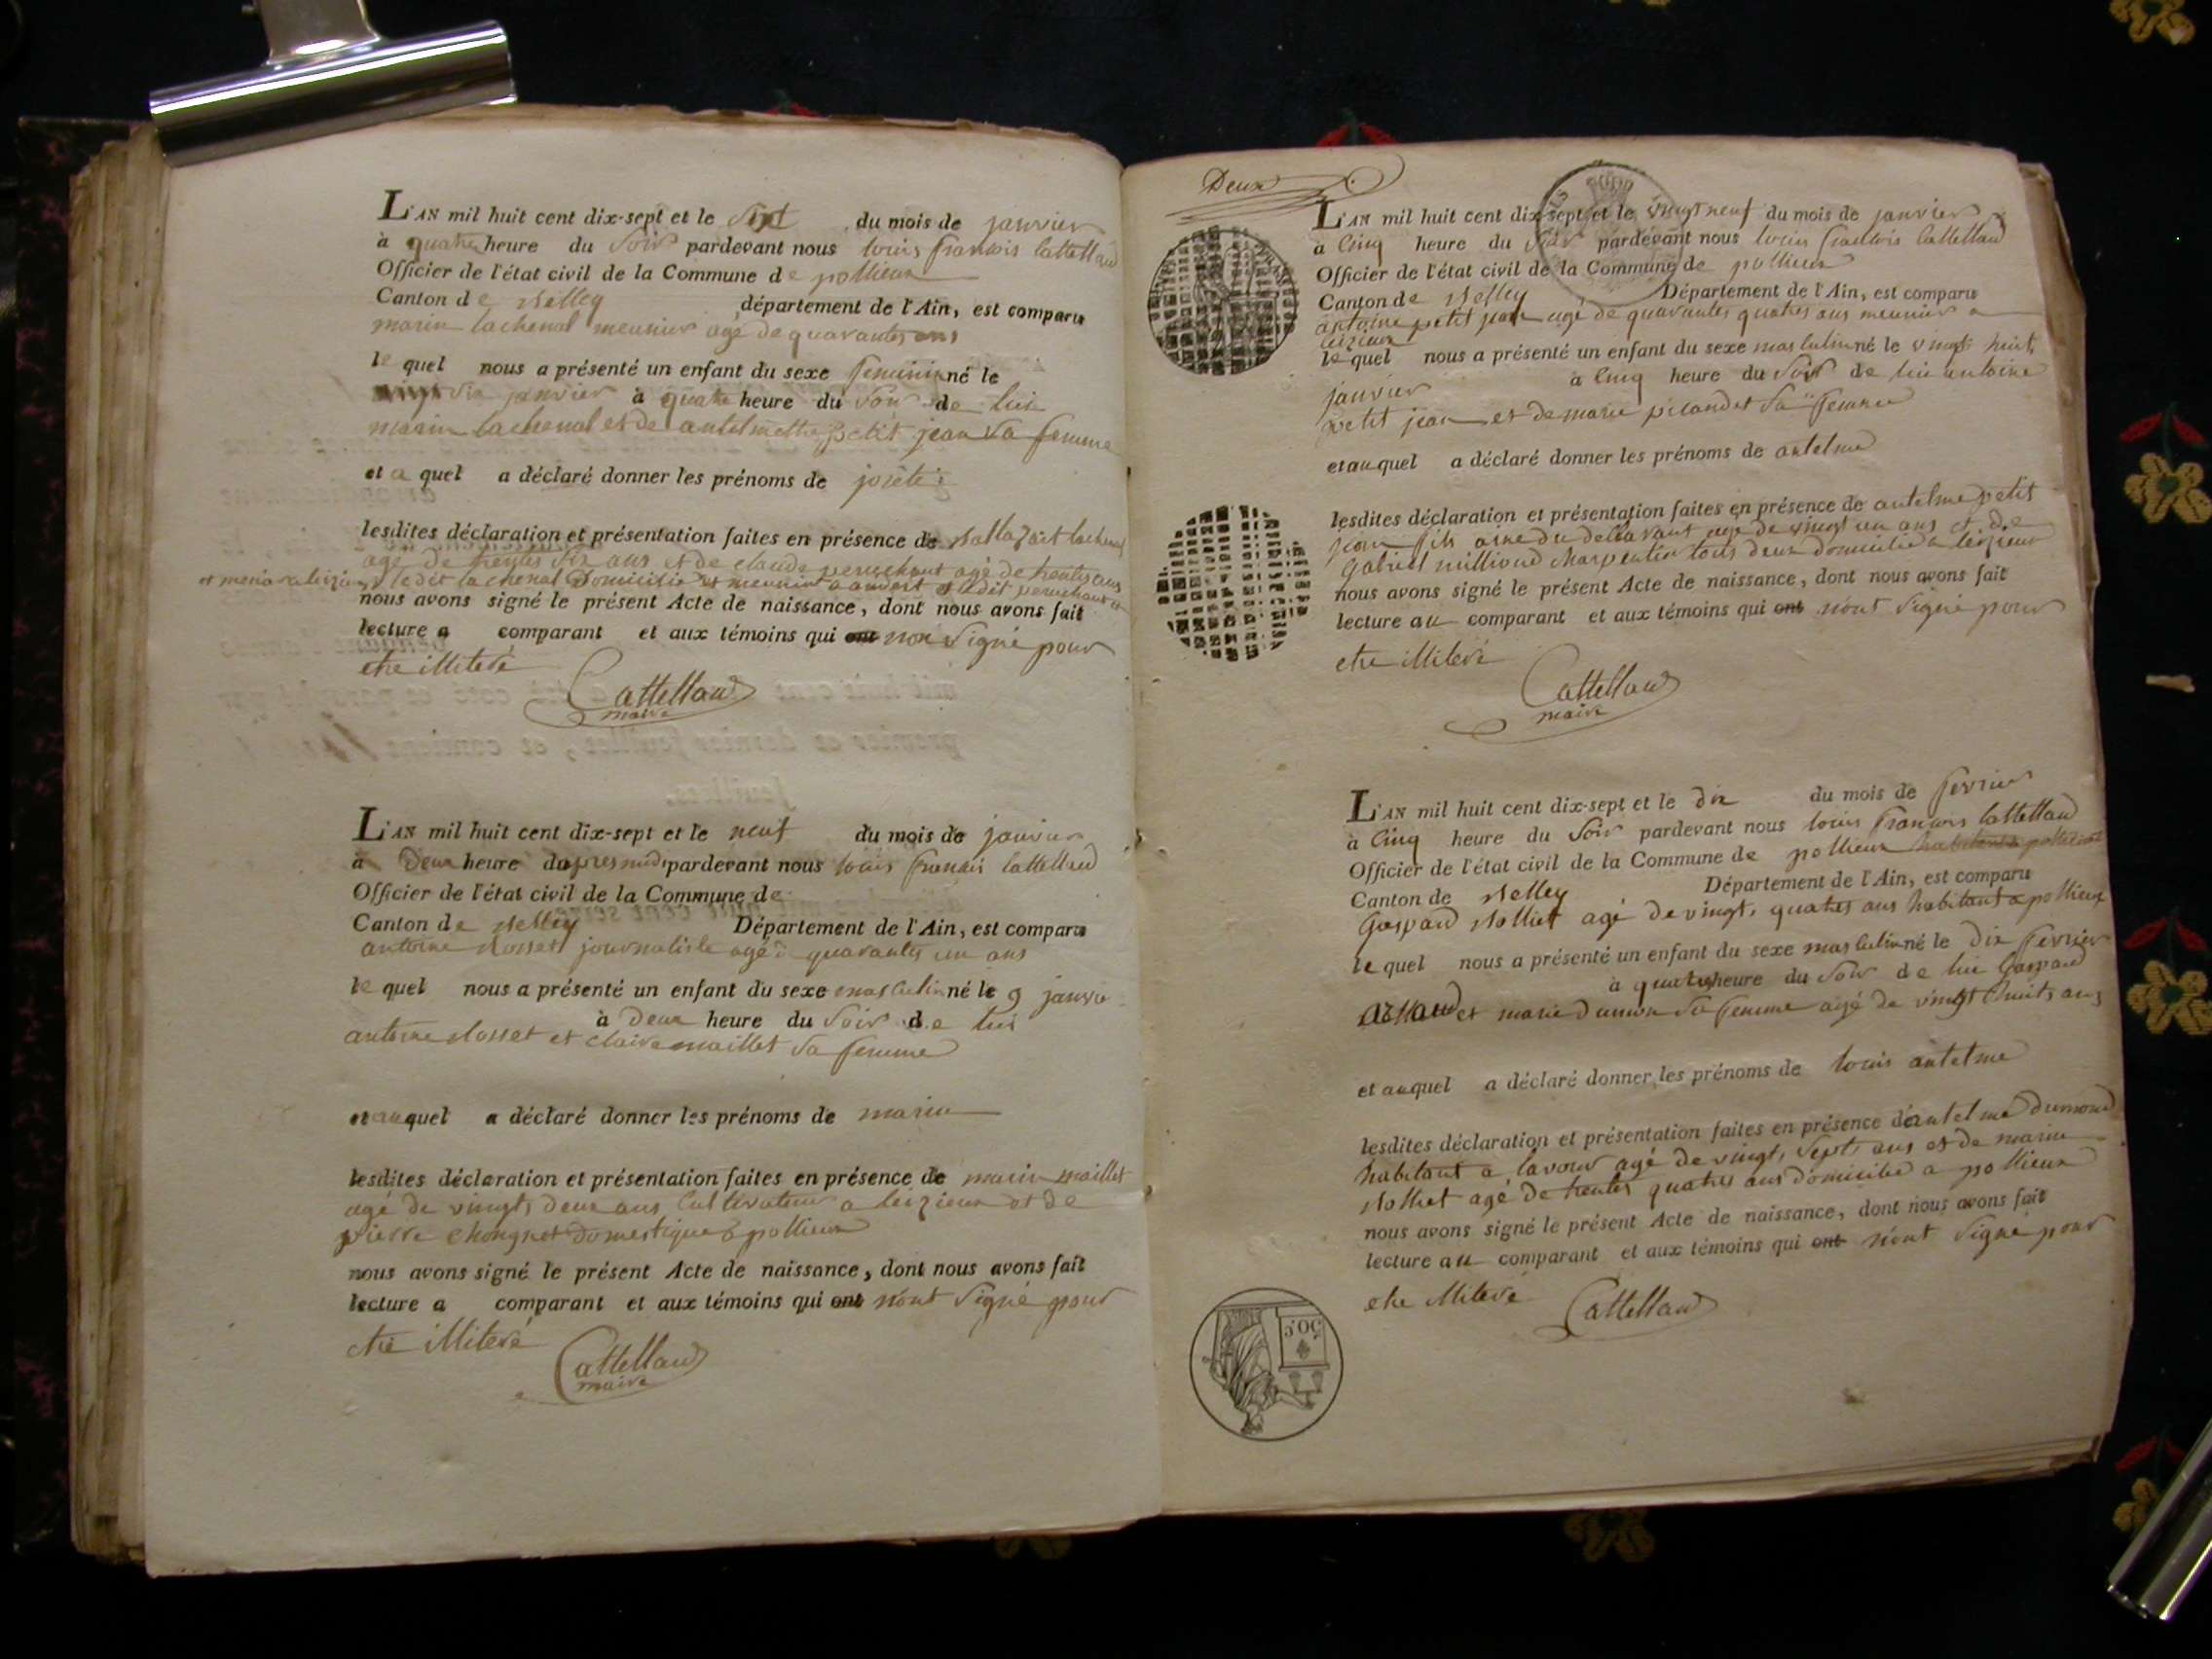 L'AN mil huit cent dix-sept et le six du mois de janvier
à quatre heure du soir pardevant nous louis francois Cattelland
Officier de l'état civil de la Commune de pollieux
Canton de Belley département de l'Ain, est comparu
marin lachenal meunier agé de quarantes ans
le quel nous a présenté un enfant du sexe feminin né le
six janvier à quatre heure du soir de lui
marin lachenal et de antelmette petit jean sa femme
et a quel a déclaré donner les prénoms de
lesdites déclaration et présentation faites en présence de Baltazart lachenal
agé de trentes six ans et de claude peruchant agé de trentes ans
ledit lachenal domicilié et meunier a et ledit peruchant
nous avons signé le présent Acte de naissance, dont nous avons fait
lecture a comparant et aux témoins qui ont non signé pour
etre illiteré
Cattelland
maire
L'AN mil huit cent dix-sept et le neuf du mois de janvier
à Deux heure du apres midi pardevant nous louis francois Cattelland
Officier de l'état civil de la Commune de
Canton de Belley Département de l'Ain, est comparu
antoine Rosset journaliste agé de quarantes un ans
le quel nous a présenté un enfant du sexe masculin né le 9 janvier
à Deux heure du soir de lui
antoine Rosset et claire maillet sa femme
et auquel a déclaré donner les prénoms de marin
lesdites déclaration et présentation faites en présence de marin maillet
agé de vingts deux ans Cultivateur a leizieux et de
pierre domestique a pollieux
nous avons signé le présent Acte de naissance, dont nous avons fait
lecture a comparant et aux témoins qui ont n'ont signé pour
etre illiteré
Cattelland
maire
Deux
L'AN mil huit cent dix-sept et le vingt neuf du mois de janvier
à Cinq heure du soir pardevant nous louis francois Cattelland
Officier de l'état civil de la Commune de pollieux
Canton de Belley Département de l'Ain, est comparu
antoine petit jean agé de quarantes quatres ans meunier a
leizieux
le quel nous a présenté un enfant du sexe masculin né le vingt huit
janvier à Cinq heure du soir de lui antoine
petit jean et de marie picandet sa femme
et auquel a déclaré donner les prénoms de antelme
lesdites déclaration et présentation faites en présence de antelme petit
jean fils ainé du agé de vingt un ans et de
Gabriel milliond charpentier tous deux domicilié a leizieux
nous avons signé le présent Acte de naissance, dont nous avons fait
lecture au comparant et aux témoins qui ont n'ont signé pour
etre illiteré
Cattelland
maire
L'AN mil huit cent dix-sept et le dix du mois de fevrier
à Cinq heure du soir pardevant nous louis francois Cattelland
Officier de l'état civil de la Commune de pollieux
Canton de Belley Département de l'Ain, est comparu
Gaspard Rolliet agé de vingt, quatres ans habitant a pollieux
le quel nous a présenté un enfant du sexe masculin né le dix fevrier
à quatres heure du soir de lui Gaspard
et marie dumon sa femme agé de vingt huits ans
et auquel a déclaré donner les prénoms de louis antelme
lesdites déclaration et présentation faites en présence de antelme dumond
habitant a lavour agé de vingt, sept ans et de marin
Rolliet agé de trentes quatres ans domicilié a pollieux
nous avons signé le présent Acte de naissance, dont nous avons fait
lecture au comparant et aux témoins qui ont n'ont signé pour
etre illiteré
Cattelland
50.c